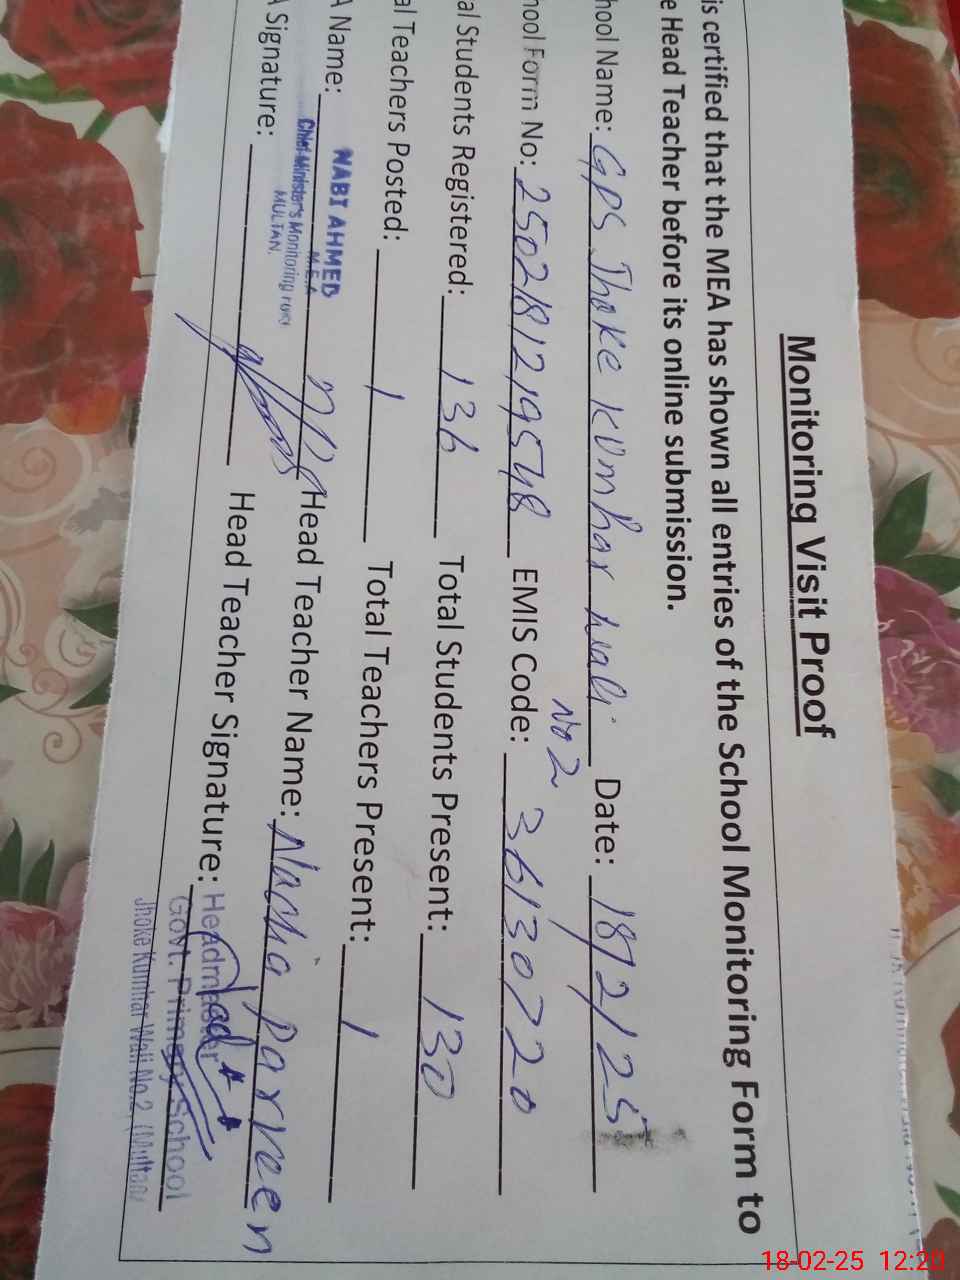 Monitoring Visit Proof
is certified that the MEA has shown all entries of the School Monitoring Form to
e Head Teacher before its online submission.
hool Name: GPS Jhoke Kumhar wali No 2 Date: 18/2/25
hool Form No: 2502181219548 EMIS Code: 36130720
al Students Registered: 136 Total Students Present: 130
al Teachers Posted: 1 Total Teachers Present: 1
A Name: NABI AHMED Head Teacher Name: Nazia Parveen
M.E.A
Chief Minister's Monitoring Force
MULTAN.
A Signature: Head Teacher Signature:
Headmaster
Govt. Primary School
Jhoke Kumhar Wali No.2 (Multan)
18-02-25 12:20